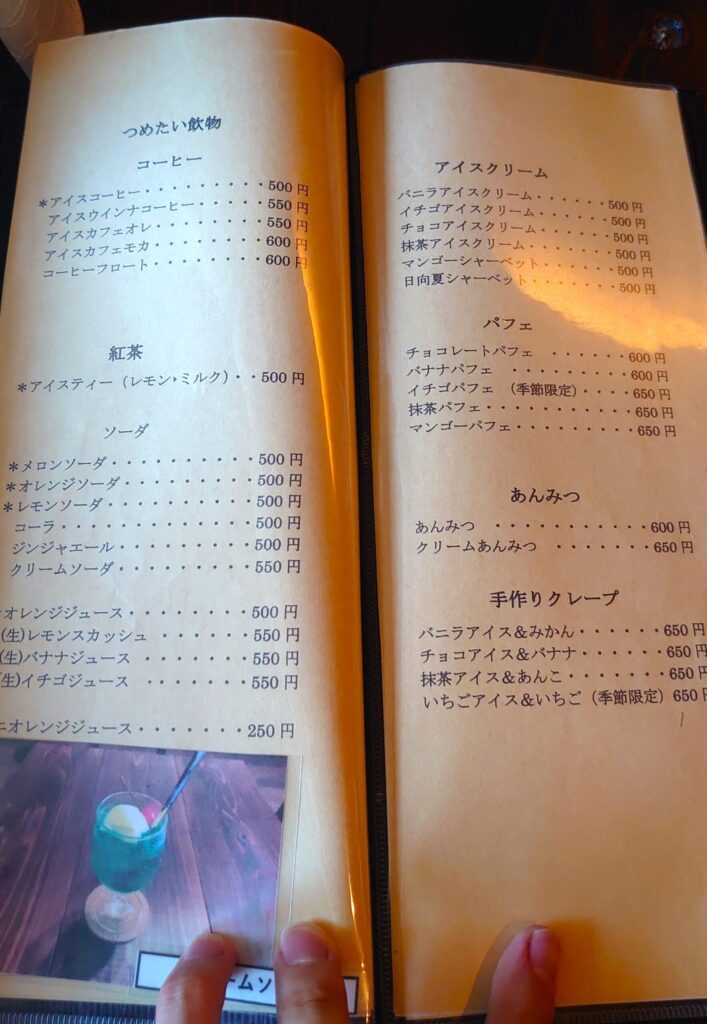 つめたい飲物
コーヒー
＊アイスコーヒー・・・・・・・・・500円
アイスウインナコーヒー・・・・・550円
アイスカフェオレ・・・・・・・・550円
アイスカフェモカ・・・・・・・・600円
コーヒーフロート・・・・・・・・600円
紅茶
＊アイスティー（レモン・ミルク）・・500円
ソーダ
＊メロンソーダ・・・・・・・・・・500円
＊オレンジソーダ・・・・・・・・・500円
＊レモンソーダ・・・・・・・・・・500円
コーラ・・・・・・・・・・・・・500円
ジンジャエール・・・・・・・・・500円
クリームソーダ・・・・・・・・・550円
オレンジジュース・・・・・・・・500円
(生)レモンスカッシュ・・・・・・・550円
(生)バナナジュース・・・・・・・550円
(生)イチゴジュース・・・・・・・550円
ニオレンジジュース・・・・・・・250円
ームソ
アイスクリーム
バニラアイスクリーム・・・・・・500円
イチゴアイスクリーム・・・・・・500円
チョコアイスクリーム・・・・・・500円
抹茶アイスクリーム・・・・・・・500円
マンゴーシャーベット・・・・・・500円
日向夏シャーベット・・・・・・・500円
パフェ
チョコレートパフェ・・・・・・600円
バナナパフェ・・・・・・・・・600円
イチゴパフェ（季節限定）・・・・650円
抹茶パフェ・・・・・・・・・・650円
マンゴーパフェ・・・・・・・・650円
あんみつ
あんみつ・・・・・・・・・・・600円
クリームあんみつ・・・・・・・650円
手作りクレープ
バニラアイス＆みかん・・・・・・650円
チョコアイス＆バナナ・・・・・・650円
抹茶アイス＆あんこ・・・・・・・650円
いちごアイス＆いちご（季節限定）650円